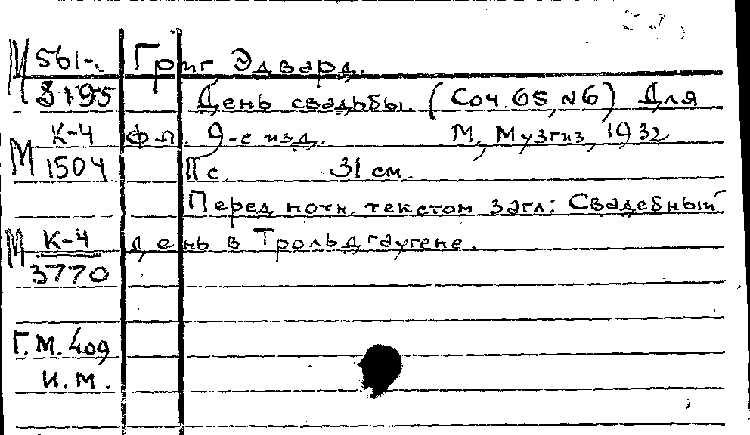 М 561-. Григ Эдвард.
3195 День свадьбы. (Соч. 65, №6) Для
К-4 ф-п. 9-е изд. М., Музгиз, 1932
М 1504 11 с 31 см.
Перед нотн. текстом загл: Свадебный
М К-4 день в Трольдгаугене.
3770
Г.М. 409
И.М.